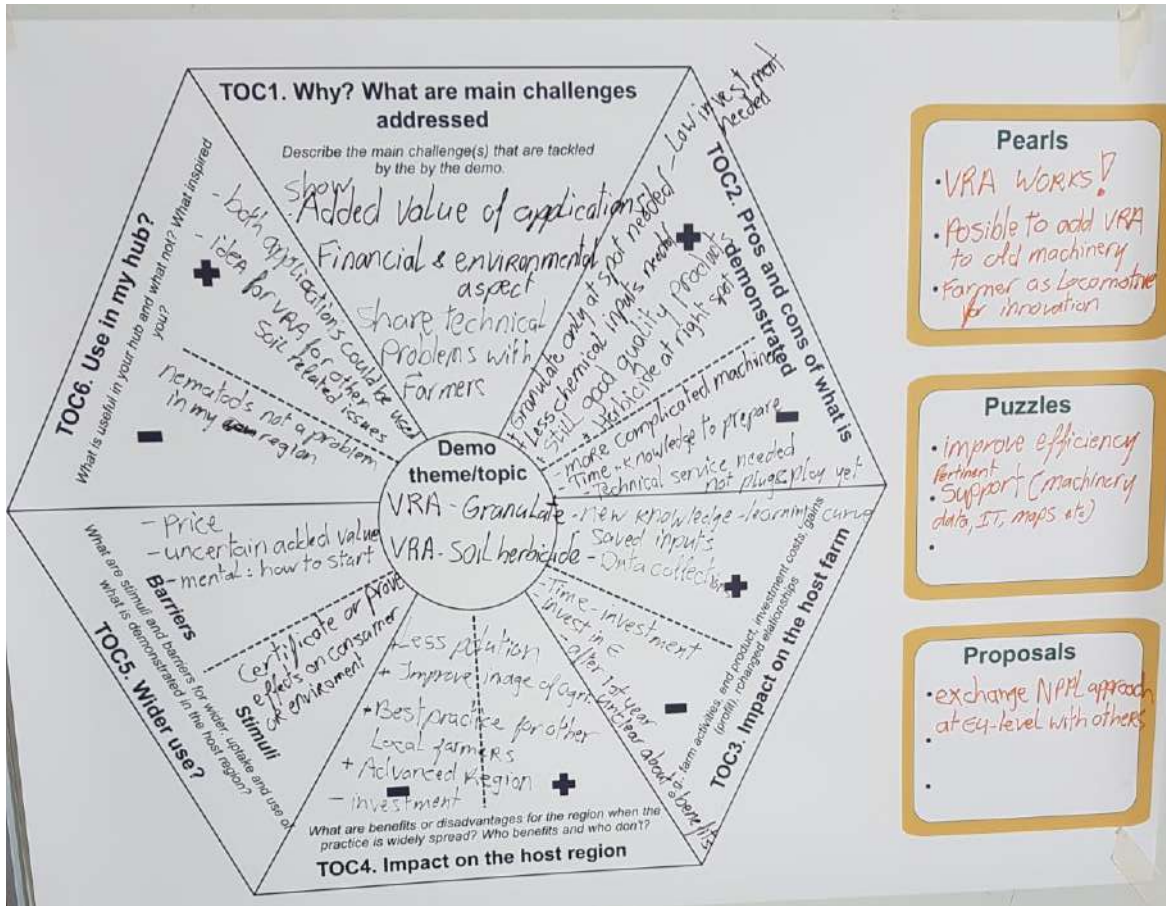 TOC1. Why? What are main challenges
addressed
Describe the main challenge(s) that are tackled
by the by the demo.
show
Added value of applications
Financial & environmental
aspect
share technical
Problems with
Farmers
TOC2. Pros and cons of what is
demonstrated
- Low investment
needed
+ Granulate only at spot needed
+ Less chemical inputs needed
+ Still good quality products
+ Herbicide at right spot
- more complicated machinery
- Time + knowledge to prepare
- Technical service needed
not plug&play yet
TOC3. Impact on the host farm
e.g. farm activities, end product, investment costs, gains
(profit), rchanged relationships
- new knowledge - learning curve
saved inputs
- Data collection
- Time-investment
- invest in €
- after 1st year
unclear about benefits
TOC4. Impact on the host region
What are benefits or disadvantages for the region when the
practice is widely spread? Who benefits and who don't?
+ Less polution
+ Improve image of agri
+ Best practice for other
Local farmers
+ Advanced Region
- investment
TOC5. Wider use?
What are stimuli and barriers for wider, uptake and use of
what is demonstrated in the host region?
Barriers
- Price
- uncertain added value
- mental: how to start
Stimuli
Certificate or prove
effects on consumer
or enviroment
TOC6. Use in my hub?
What is useful in your hub and what not? What inspired
you?
- both applications could be used
- idea for VRA for other
soil related issues
nematods not a problem
in my region
Demo
theme/topic
VRA - Granulate
VRA - Soil herbicide
Pearls
• VRA WORKS!
• Posible to add VRA
to old machinery
• Farmer as Locomotive
for innovation
Puzzles
• improve efficiency
Pertinent
• Support (machinery
data, IT, maps etc)
•
Proposals
• exchange NPPL approach
at EU-level with others
•
•